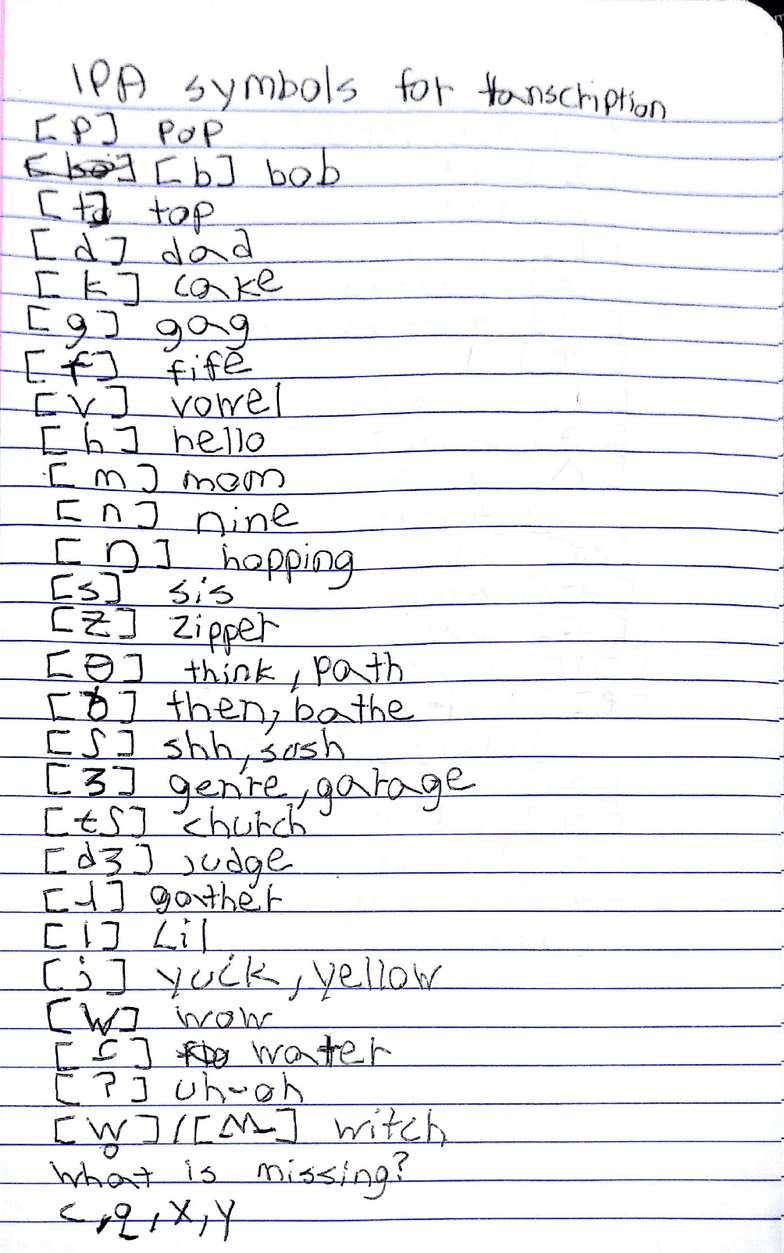 IPA symbols for transcription
[p] pop
[b] bob
[t] top
[d] dad
[k] cake
[g] gag
[f] fife
[v] vowel
[h] hello
[m] mom
[n] nine
[ŋ] hopping
[s] sis
[z] zipper
[θ] think, path
[ð] then, bathe
[ʃ] shh, sosh
[ʒ] genre, garage
[tʃ] church
[dʒ] judge
[ɹ] gather
[l] Lil
[j] yuck, yellow
[w] wow
[ɾ] water
[ʔ] uh-oh
[w̥]/[ʍ] witch
What is missing?
c, q, x, y